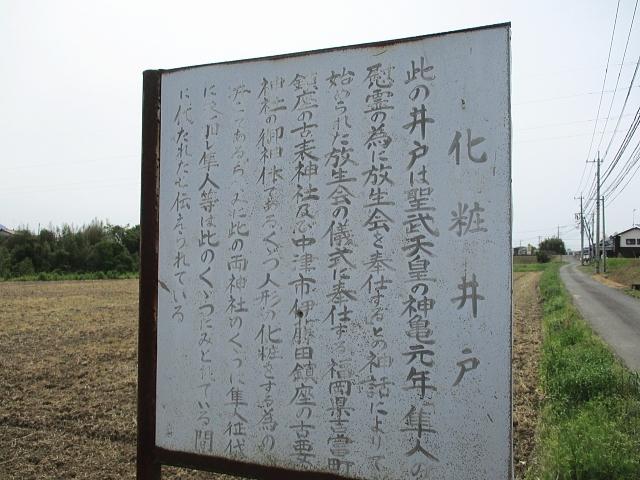 化粧井戸
此の井戸は聖武天皇の神亀元年隼人の
慰霊の為に放生会を奉仕するとの神話によりて
始められた放生会の儀式に奉仕する福岡県吉富町
鎮座の古表神社及び中津市伊藤田鎮座の古要
神社の御神体であるくぐつ人形の化粧をする為の
井戸であるら 又に此の両神社のくぐつに隼人征伐
に 隼人等は此のくぐつにみとれている間
に伐たれたと伝えられている